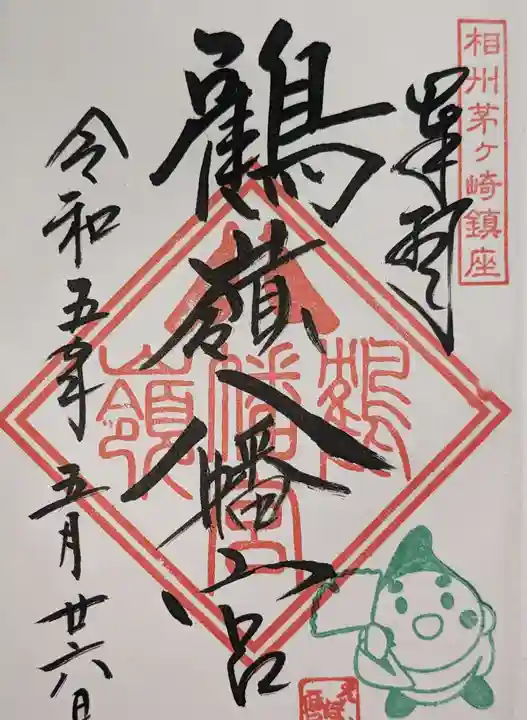 相州茅ヶ崎鎮座
奉拝
鶴嶺八幡宮
鶴嶺八幡宮
令和五年五月廿六日